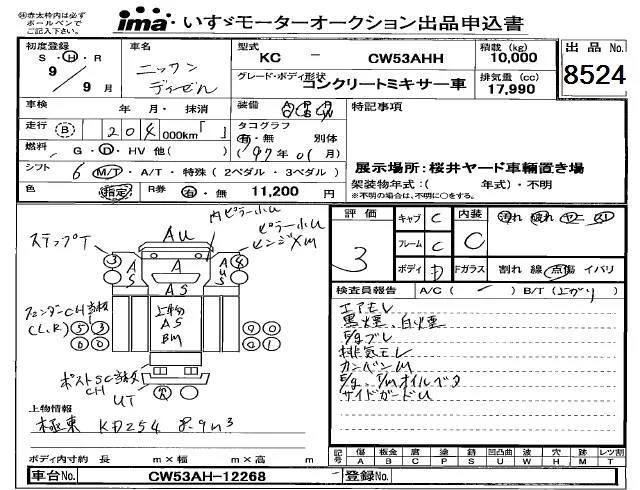 ㊟赤太枠は必ず
ボールペンで
ご記入下さい。
ima いすゞモーターオークション出品申込書
初度登録 車名 型式 積載 (kg) 出品 No.
S・H・R ニッサン KC - CW53AHH 10,000
9年 9月 ディーゼル グレード・ボディ形状 排気量 (cc) 8524
コンクリートミキサー車 17,990
車検 年 月・抹消 装備 特記事項
走行 (B) 204 000km「 」 タコグラフ
有・無・別体
燃料 G・D・HV 他( ) (97年01月)
展示場所：桜井ヤード車輛置き場
シフト 6 M/T・A/T・特殊 (2ペダル・3ペダル) 架装物年式：( 年式)・不明
※不明の場合は、不明に○をする。
色 指定 R券 有・無 11,200 円
評価 3 キャブ C 内装 C 汚れ 破れ ヤニ スレ
フレーム C
ボディ D Fガラス 割れ 線 点傷 イバリ
内ピラー小U
ピラー小U
ヒンジXM
ステップT
AU
A
AS
AUS
AS
上物
AS
BM
フェンダーCH
(L,R)
ポストSC
CH
UT
検査員報告 A/C ( - ) B/T (上がり)
エアモレ
黒煙、白煙
排気モレ
カンバンM
E/g、T/Mオイルベタ
サイドガードU
上物情報
極東 KD254 8.9m3
ボディ内寸約 長 m×幅 m×高 m
記号 傷 A 板金 B 腐 C 塗 P 錆 S 凹凸曲 U 波 W 穴 H 欠 M 飛石 X レンズ割 T
車台No. CW53AH-12268 登録No.